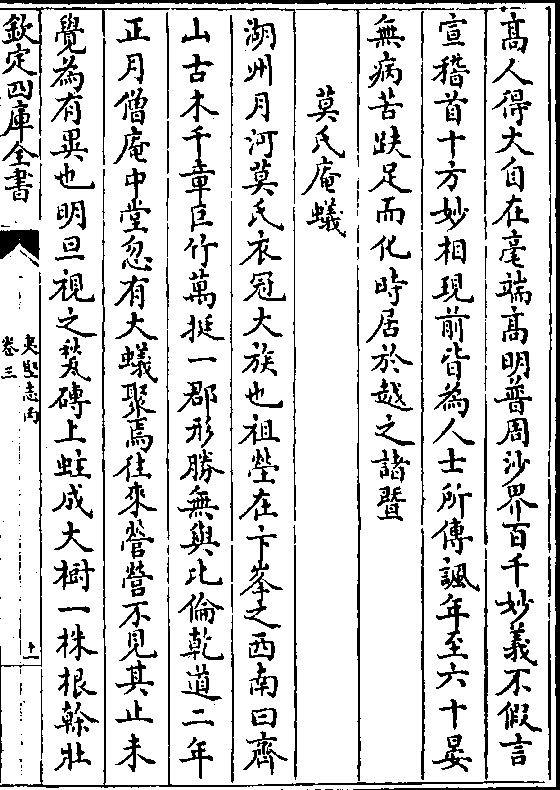 髙人得大自在毫端髙明普周沙界百千妙義不假言
宣稽首十方妙相現前皆為人士所傳諷年至六十晏
無病苦趺足而化時居於越之諸暨
莫氏庵蟻
湖州月河莫氏衣冠大族也祖塋在卞峯之西南曰齊
山古木千章巨竹萬挺一郡形勝無與比倫乾道二年
正月僧庵中堂忽有大蟻聚焉往來營營不見其止未
覺為有異也明旦視之甃磚上蛀成大樹一株根榦壯
欽定四庫全書
夷堅志丙
卷三
十一